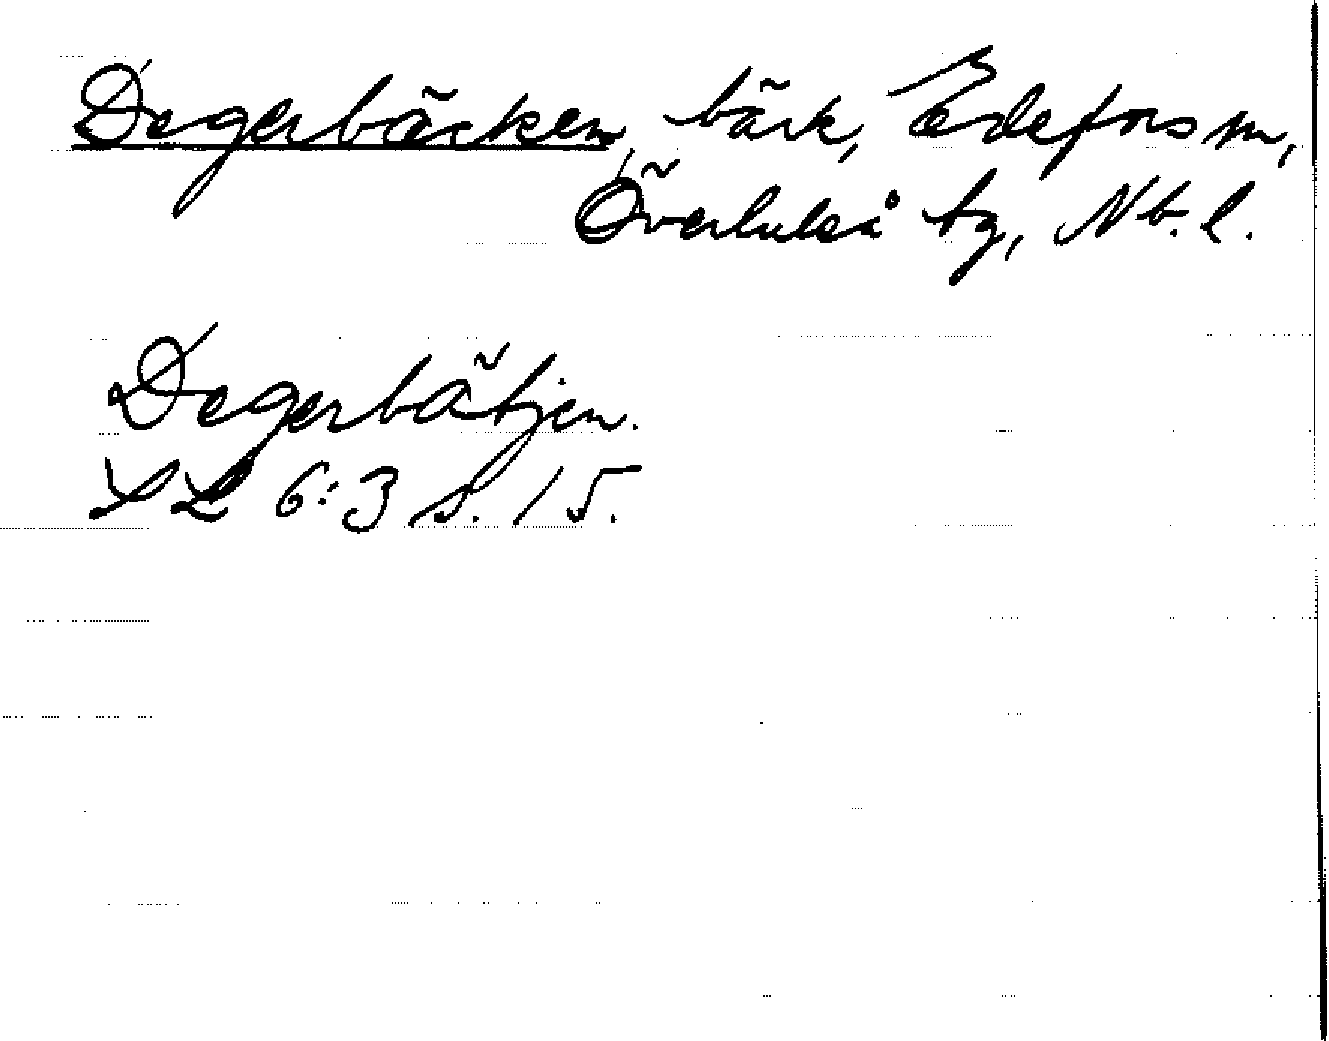 Degerbäcken, bäck, Edefors sn,
Överluleå tg, Nb. l.
Degerbätjen.
SL 6:3 s. 15.